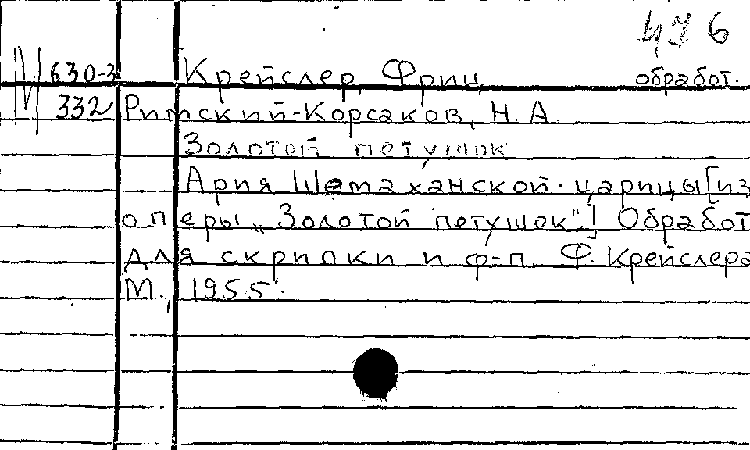 476
630-3 Крейслер, Фриц обработ.
332 Римский-Корсаков, Н. А.
Золотой петушок
Ария Шемаханской царицы [из
оперы „Золотой петушок".] Обработ
для скрипки и ф-п. Ф. Крейслера
М., 1955.